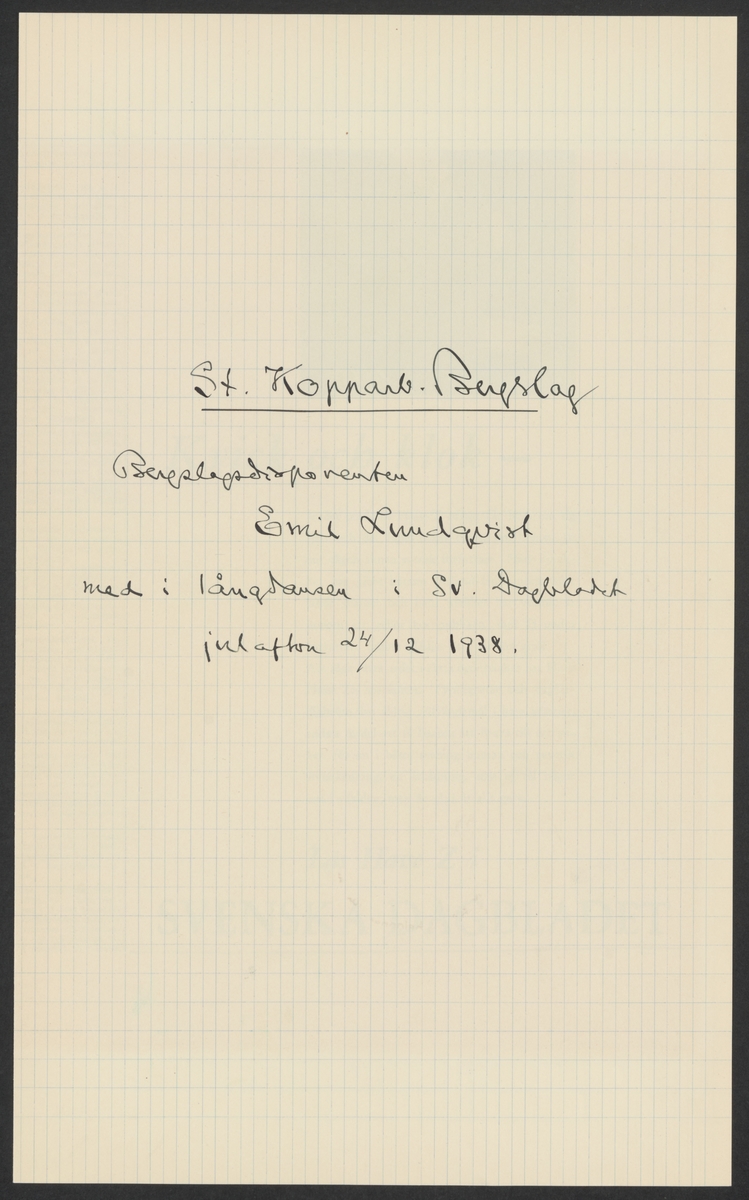 St. Kopparb. Bergslag
Bergslagsdisponenten
Emil Lundqvist
med i långdansen i Sv. Dagbladet
julafton 24/12 1938.